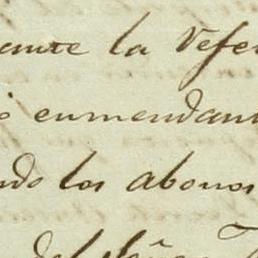 ante la Refe
o enmendan
ndo los abonos
del Señor